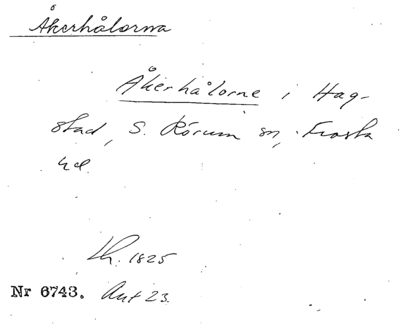 Åkerhålorna
Åkerhålorne i Hag-
stad, S. Rörum sn, Frosta
hd.
Lh. 1825
Nr 6743. Akt 23.